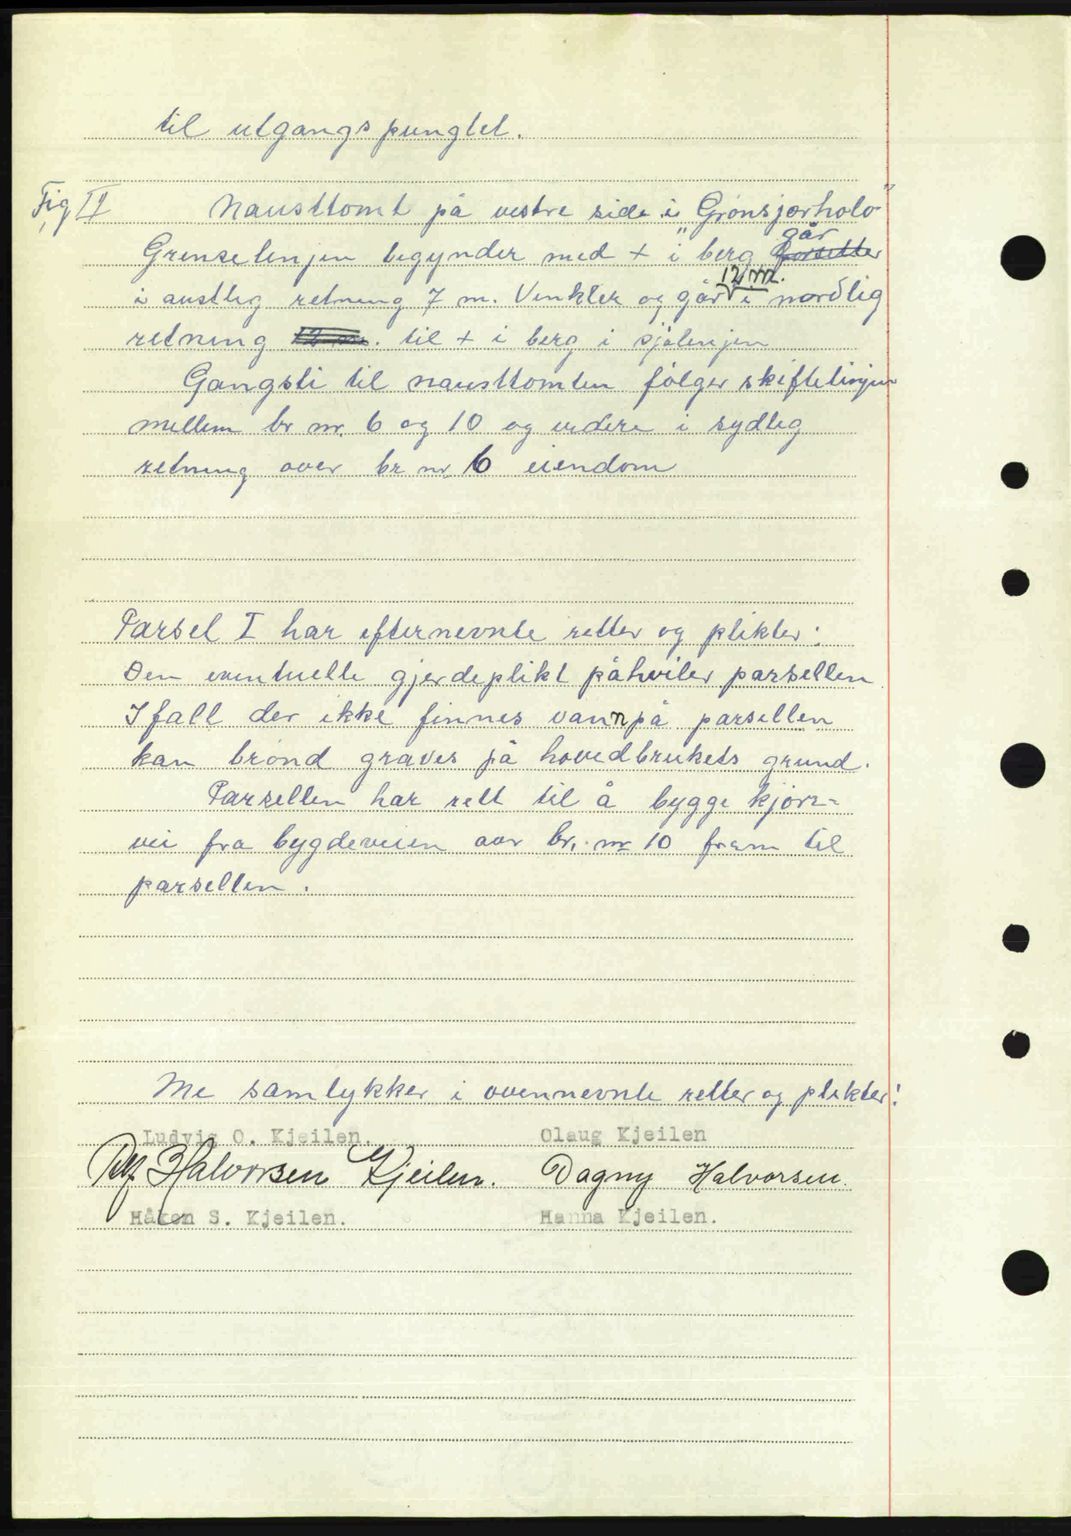 til utgangspungtet.
Fig II Nausttomt på vestre side i "Grønsjørholo"
Grenselinjen begynder med + i berg går
i austlig retning 7 m. Vinkler og går 12 m. i nordlig
retning 12 m. til + i berg i sjølinjen
Gangsti til nausttomten følger skiftelinjen
mellem br nr. 6 og 10 og videre i sydlig
retning over br nr. 6 eiendom
Parsel I har efternevnte retter og plikter:
Den eventuelle gjerdeplikt påhviler parsellen
I fall der ikke finnes vann på parsellen
kan brønd graves på hovedbrukets grund.
Parsellen har rett til å bygge kjør=
vei fra bygdeveien over br. nr 10 fram til
parsellen.
Me samtykker i ovennevnte retter og plikter!
Ludvig O. Kjeilen. Olaug Kjeilen
Halvorsen Kjeilen. Dagny Halvorsen.
Håkon S. Kjeilen. Hanna Kjeilen.